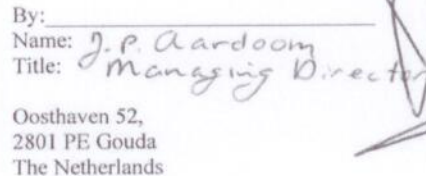 By:
Name: J.P. Aardoom
Title: Managing Director
Oosthaven 52,
2801 PE Gouda
The Netherlands